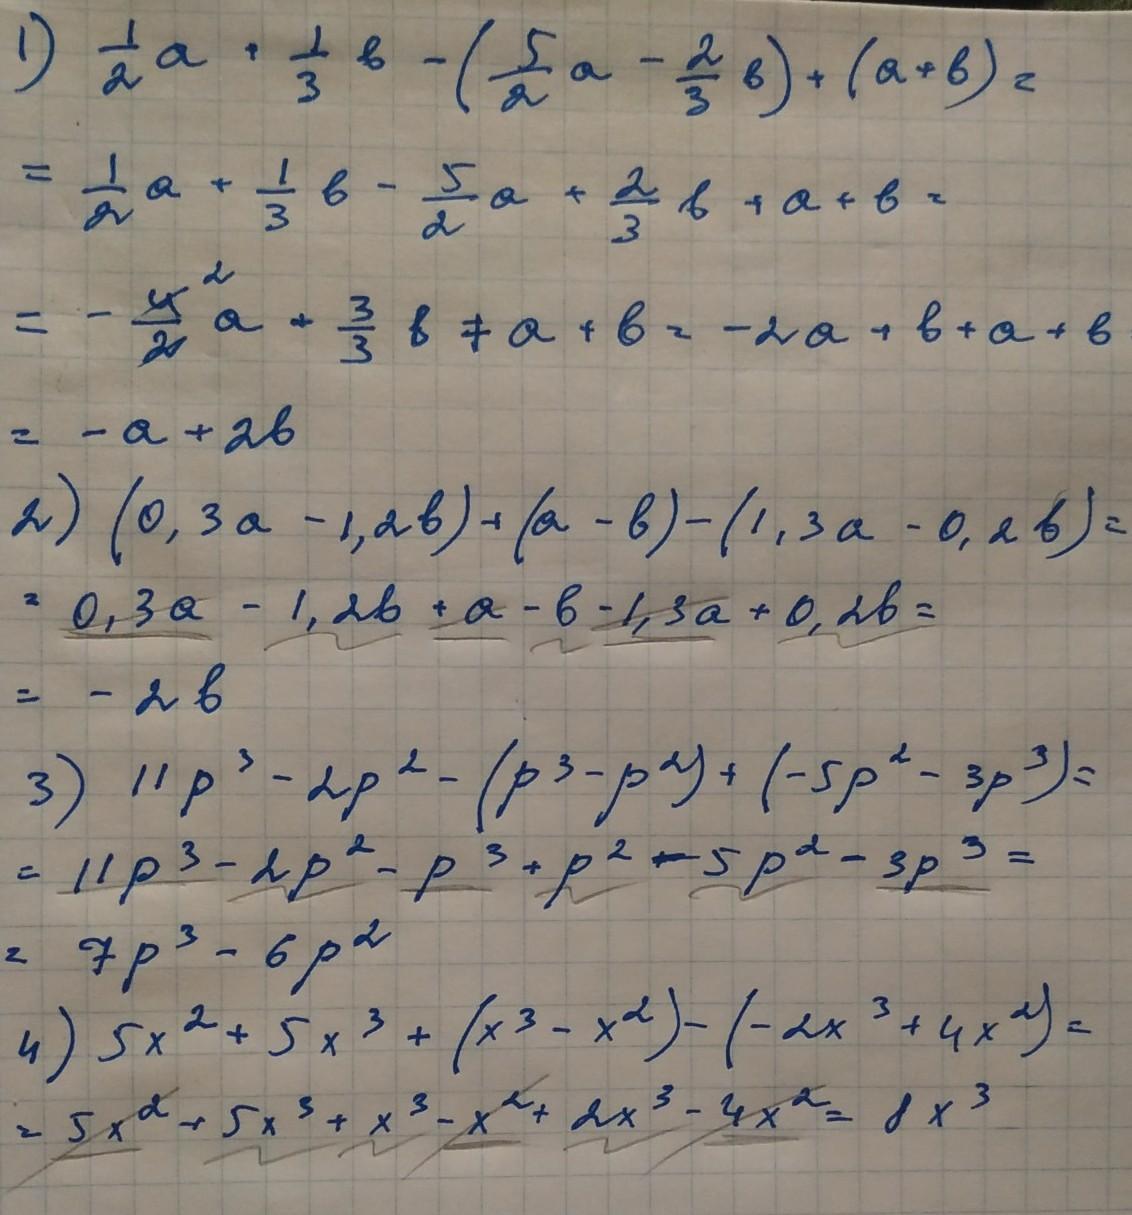 1) 1/2 a + 1/3 b - (5/2 a - 2/3 b) + (a + b) =
= 1/2 a + 1/3 b - 5/2 a + 2/3 b + a + b =
= - 4/2 ² a + 3/3 b + a + b = -2a + b + a + b
= -a + 2b
2) (0,3a - 1,2b) + (a - b) - (1,3a - 0,2b) =
= 0,3a - 1,2b + a - b - 1,3a + 0,2b =
= - 2b
3) 11p³ - 2p² - (p³ - p²) + (-5p² - 3p³) =
= 11p³ - 2p² - p³ + p² - 5p² - 3p³ =
= 7p³ - 6p²
4) 5x² + 5x³ + (x³ - x²) - (-2x³ + 4x²) =
= 5x² + 5x³ + x³ - x² + 2x³ - 4x² = 8x³